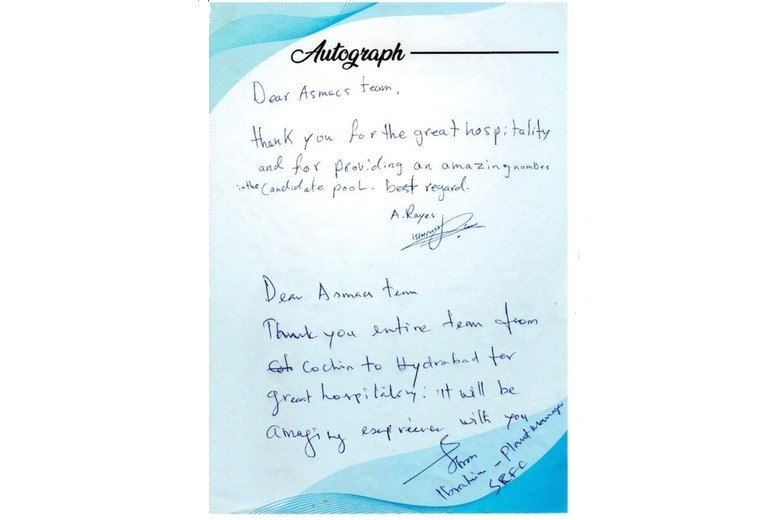 Autograph
Dear Asmacs team,
thank you for the great hospitality
and for providing an amazing number
in the Candidate pool. best regard.
A. Rayes
Dear Asmacs team
Thank you entire team from
Cochin to Hydrabad for
great hospitality. it will be
amazing with you
Ibrahim - Plant Manager
SRFC